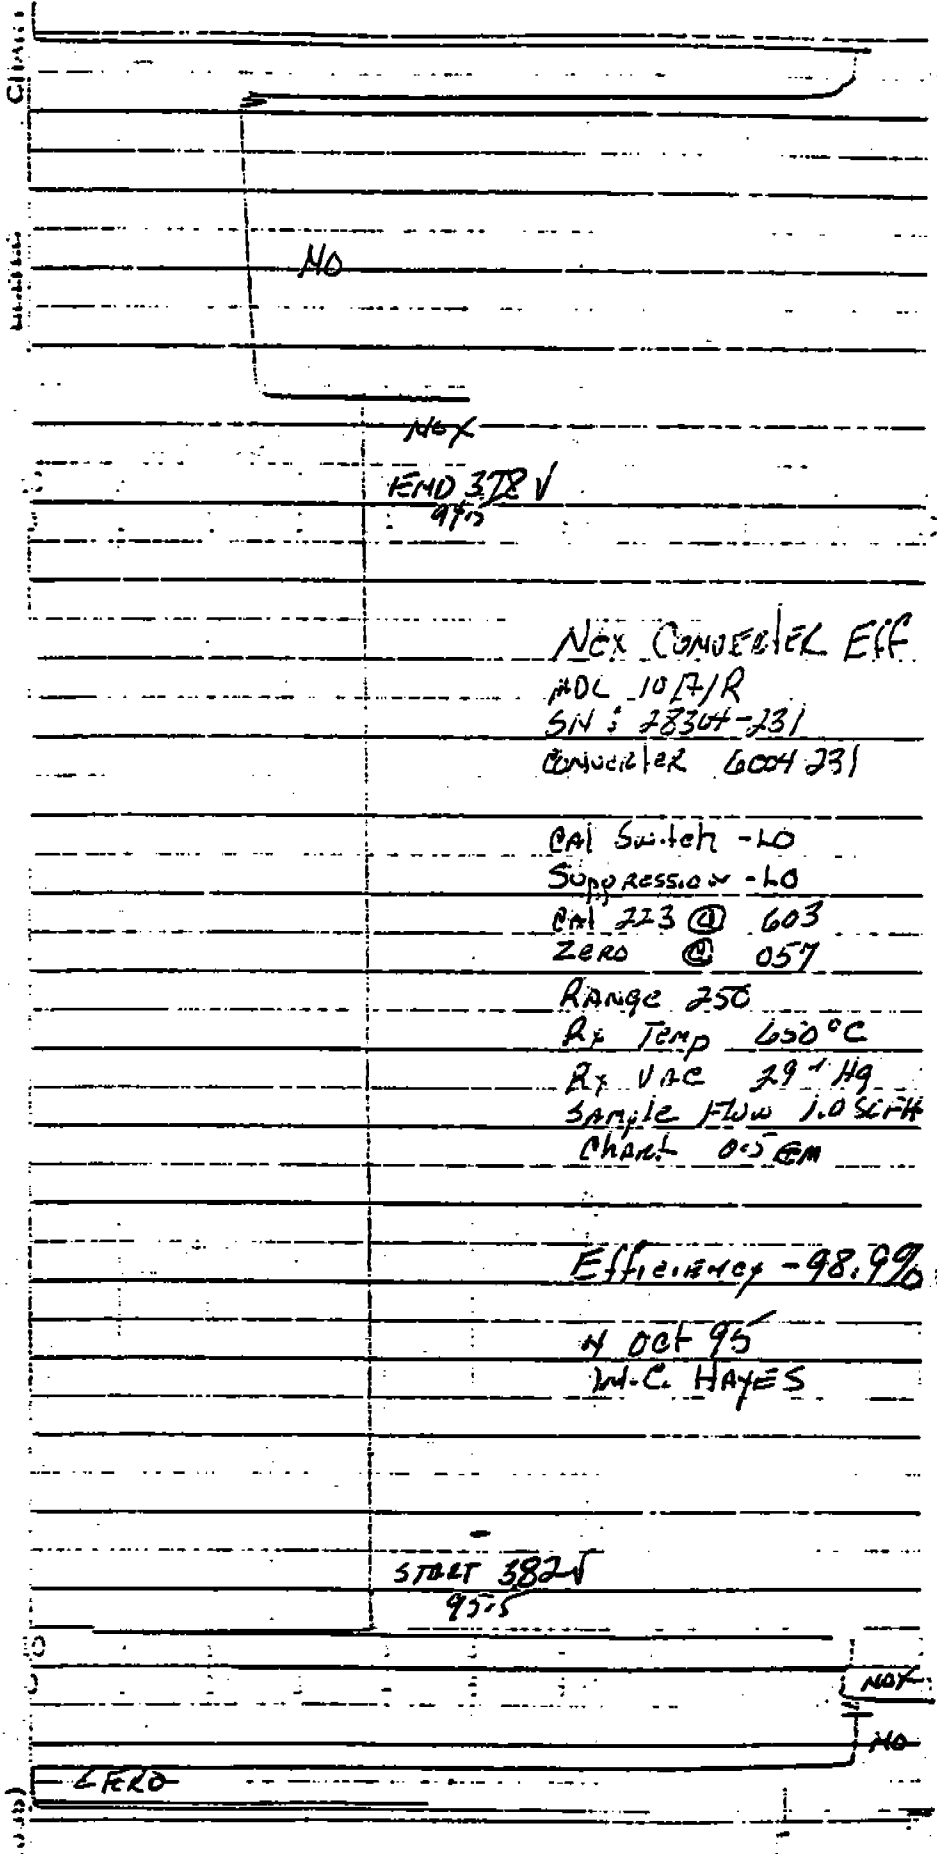 NO
NOX
END 378 V
94.5
NOX CONVERTER Eff
MDL 10A/R
SN: 28304-231
Converter 6004-231
CAl Switch - LO
Suppression - LO
CAl 223 @ 603
ZERO @ 057
RANge 250
Rx Temp 650°C
Rx VAC 29" Hg
SAmple Flow 1.0 SCFH
ChArt 0.5 CM
Efficiency - 98.9%
4 Oct 95
W.C. HAYES
START 382 V
95.5
NOX
NO
ZERO